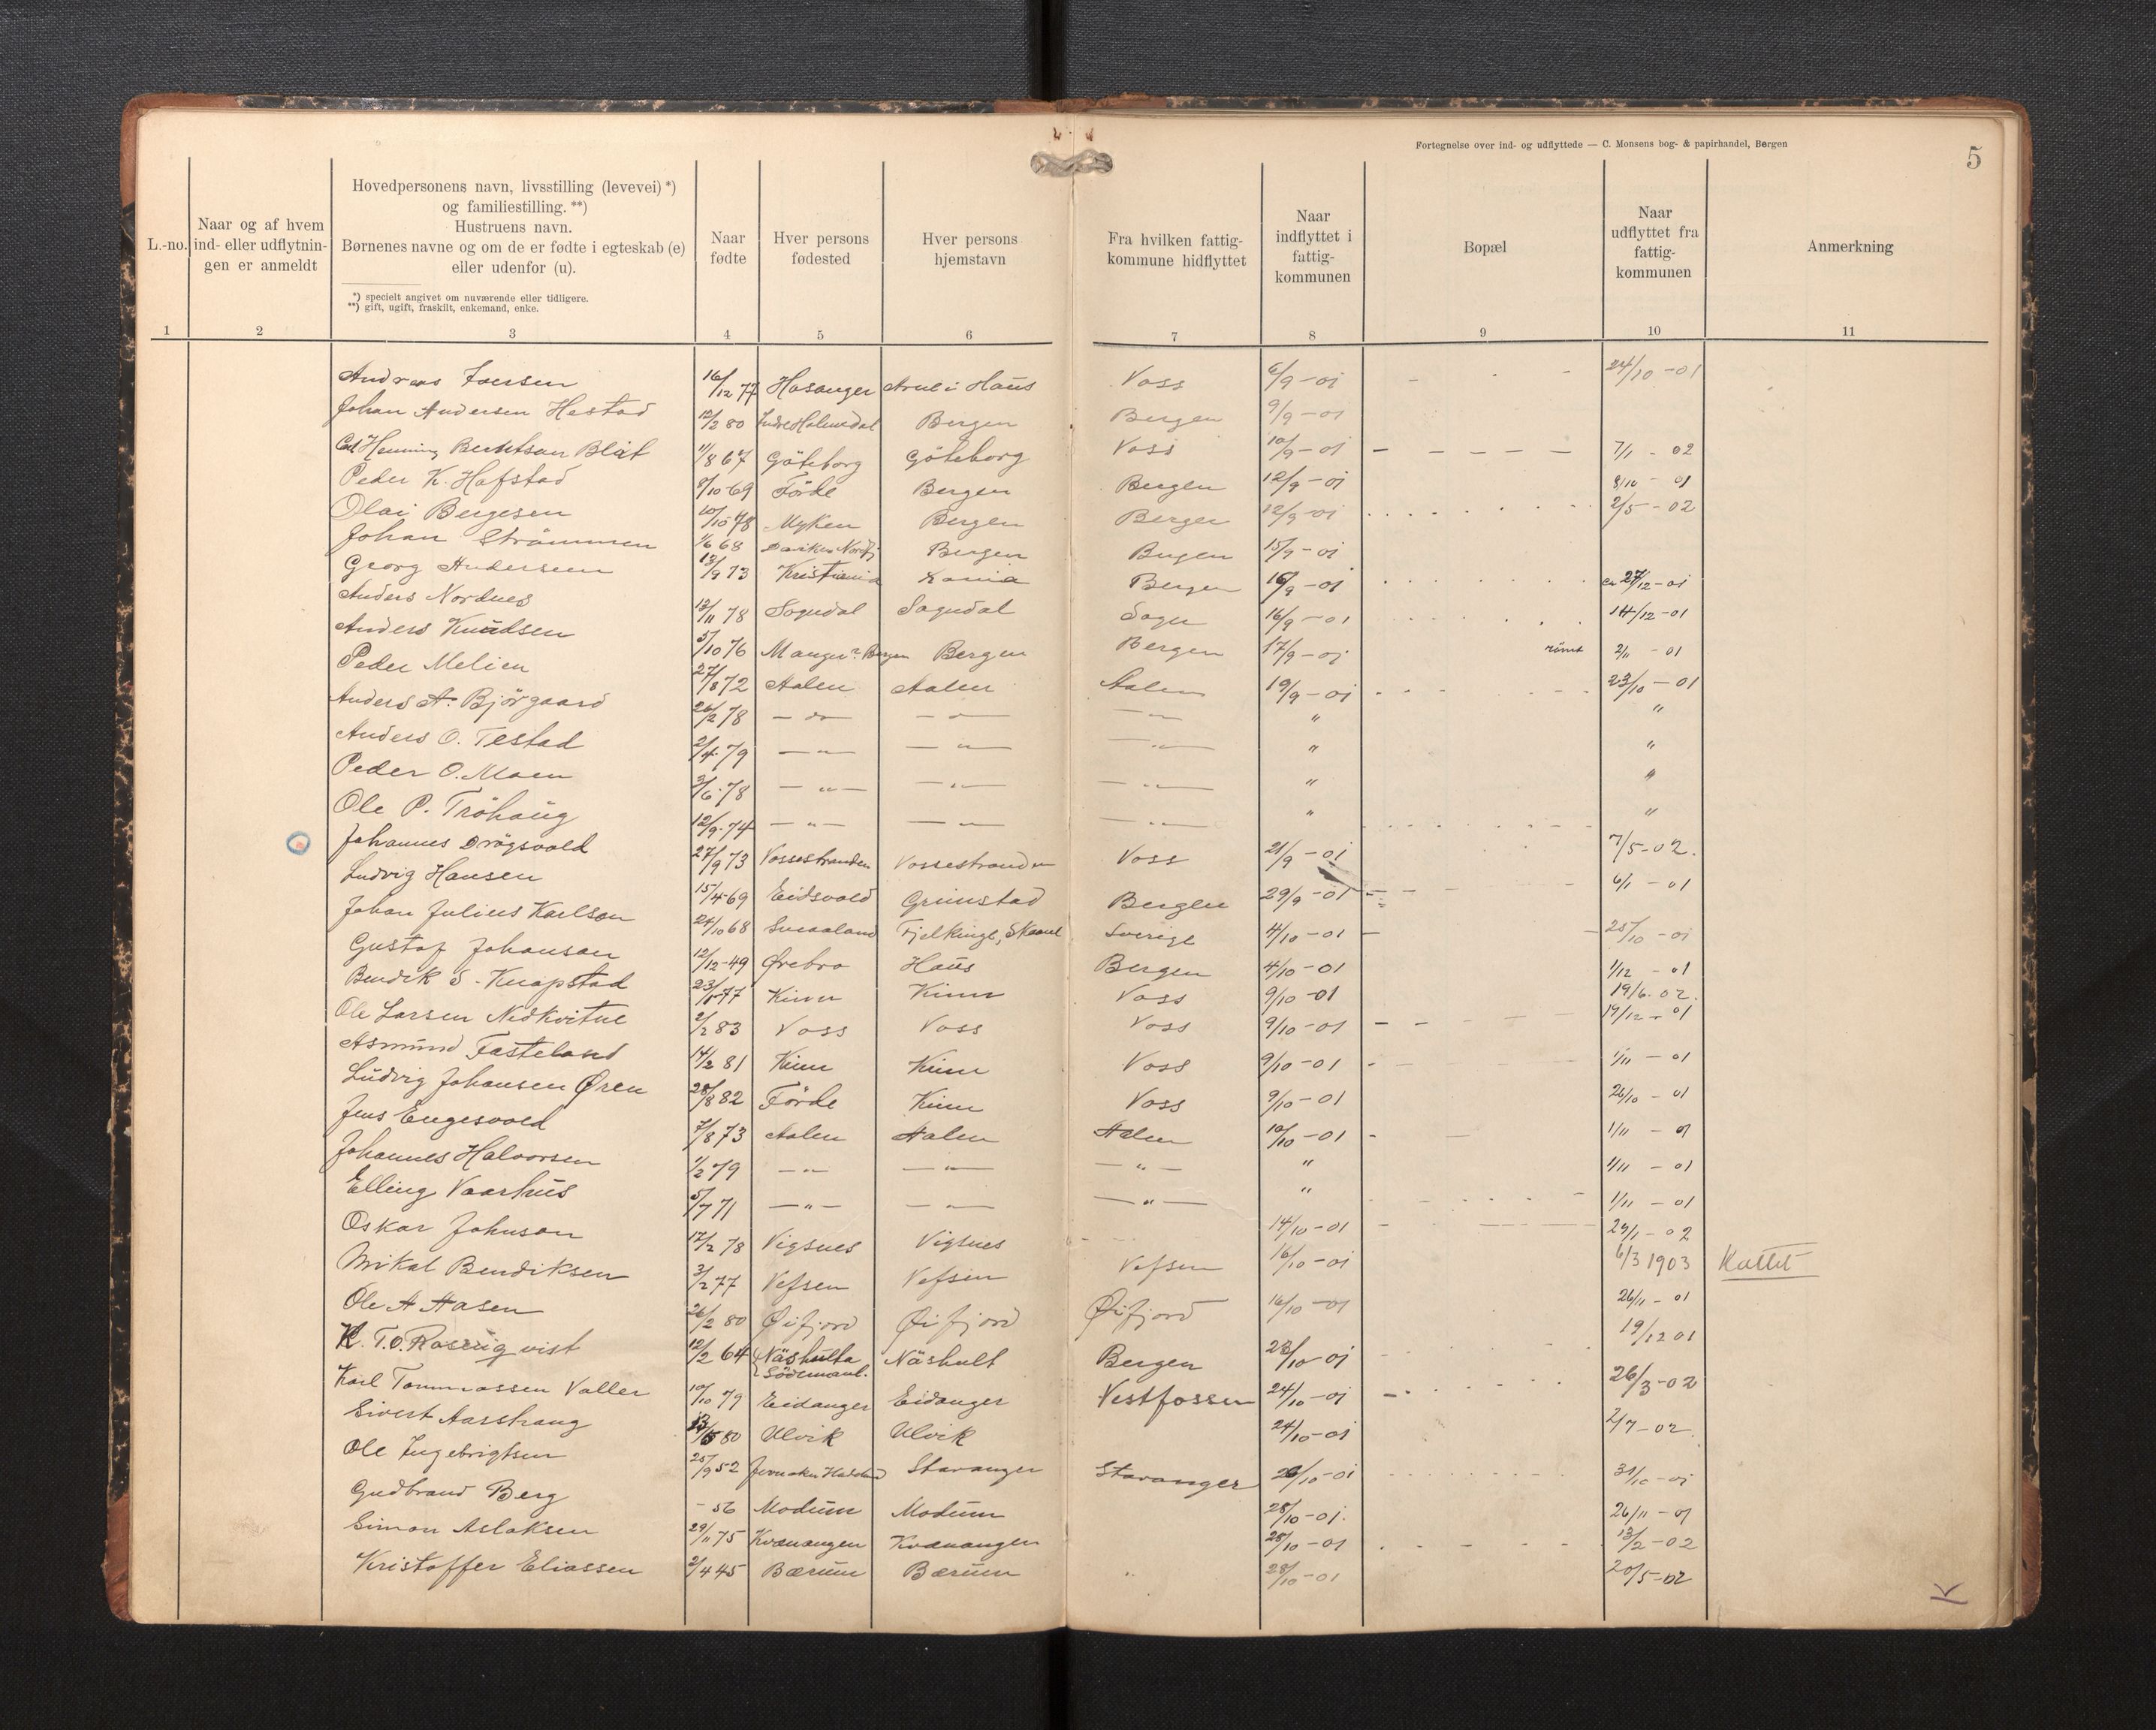 Fortegnelse over ind- og udflyttede — C. Monsens bog- & papirhandel, Bergen
5
L.-no.
Naar og af hvem
ind- eller udflytnin-
gen er anmeldt
Hovedpersonens navn, livsstilling (levevei) *)
og familiestilling. **)
Hustruens navn.
Børnenes navne og om de er fødte i egteskab (e)
eller udenfor (u).
*) specielt angivet om nuværende eller tidligere.
**) gift, ugift, fraskilt, enkemand, enke.
Naar
fødte
Hver persons
fødested
Hver persons
hjemstavn
Fra hvilken fattig-
kommune hidflyttet
Naar
indflyttet i
fattig-
kommunen
Bopæl
Naar
udflyttet fra
fattig-
kommunen
Anmerkning
1 2 3 4 5 6 7 8 9 10 11
Andreas Iversen 16/12 77 Hosanger Arne i Haus Voss 6/9-01 24/10-01
Johan Andersen Hestad 12/2 80 Indre Holmedal Bergen Bergen 9/9-01
Carl Henning Blåt 11/8 67 Göteborg Göteborg Voss 10/9-01 7/1-02
Peder K. Hafstad 9/10-69 Förde Bergen Bergen 12/9-01 8/10-01
Olai Bergesen 10/10-78 Myken Bergen Bergen 12/9-01 2/5-02
Johan Strömmen 1/6 68 Bergen Bergen 15/9-01
Georg Andersen 13/9 73 Kristiania Kania Bergen 16/9-01 ca 27/12-01
Anders Nordnes 12/11 78 Sogndal Sogndal Sogn 16/9-01 14/12-01
Anders Knudsen 5/10 76 Manger? Bergen Bergen Bergen 17/9-01 römt 2/11-01
Peder Melien 27/8 72 Aalen Aalen Aalen 19/9-01 23/10-01
Anders A. Bjørgaard 26/2 78 — do — — " — — " — " "
Anders O. Testad 2/4-79 — " — — " — — " — " "
Peder O. Moen 3/6-78 — " — — " — — " — " "
Ole P. Tröhaug 12/9-74 — " — — " — — " — " "
Johannes Drögsvold 27/9 73 Vossestranden Vossestranden Voss 21/9-01 7/5-02.
Ludvig Hansen 15/4-69 Eidsvold Grimstad Bergen 29/9-01 6/1-01
Johan Julius Karlson 24/10 68 Smaaland Fjelkinge, Skaane Sverige 4/10-01 25/10-01
Gustaf Johanson 12/12-49 Ørebro Haus Bergen 4/10-01 1/12-01
Bendik S. Knapstad 23/1-77 Kinn Kinn Voss 9/10-01 19/6-02.
Ole Larsen Nedkvitne 2/2 83 Voss Voss Voss 9/10-01 19/12-01
Asmund Fasteland 14/2 81 Kinn Kinn Voss 9/10-01 1/11-01
Ludvig Johansen Øren 28/8 82 Förde Kinn Voss 9/10-01 26/10-01
Jens Engesvold 7/8 73 Aalen Aalen Aalen 10/10-01 1/11-01
Johannes Halvorsen 1/2 79 — " — — " — — " — " 1/11-01
Elling Vaarhus 5/7 71 — " — — " — — " — " 1/11-01
Oskar Johnson 17/2 78 Vigsnes Vigsnes 14/10-01 29/1-02
Mikal Bendiksen 3/2 77 Vefsen Vefsen Vefsen 16/10-01 6/3 1903
Ole A Aasen 26/2 80 Øifjord Øifjord Øifjord 16/10-01 26/11-01
K. T. O. Rosenqvist 12/2 64 Näshulta Södermanl. Näshult Bergen 23/10-01 19/12 01
Karl Tommassen Valler 10/10 79 Eidanger Eidanger Vestfossen 24/10-01 26/3-02
Sivert Aasstrang 13/5 80 Ulvik Ulvik 24/10-01 2/7-02.
Ole Ingebrigtsen 25/9 52 Stavanger Stavanger 26/10-01 31/10-01
Gudbrand Berg - 56 Modum Modum 28/10-01. 26/11-01
Simon Aslaksen 29/11 75 Kvænangen Kvænangen 28/10-01 13/2-02
Kristoffer Eliassen 2/4 45 Bærum Bærum " 28/10-01 20/5-02